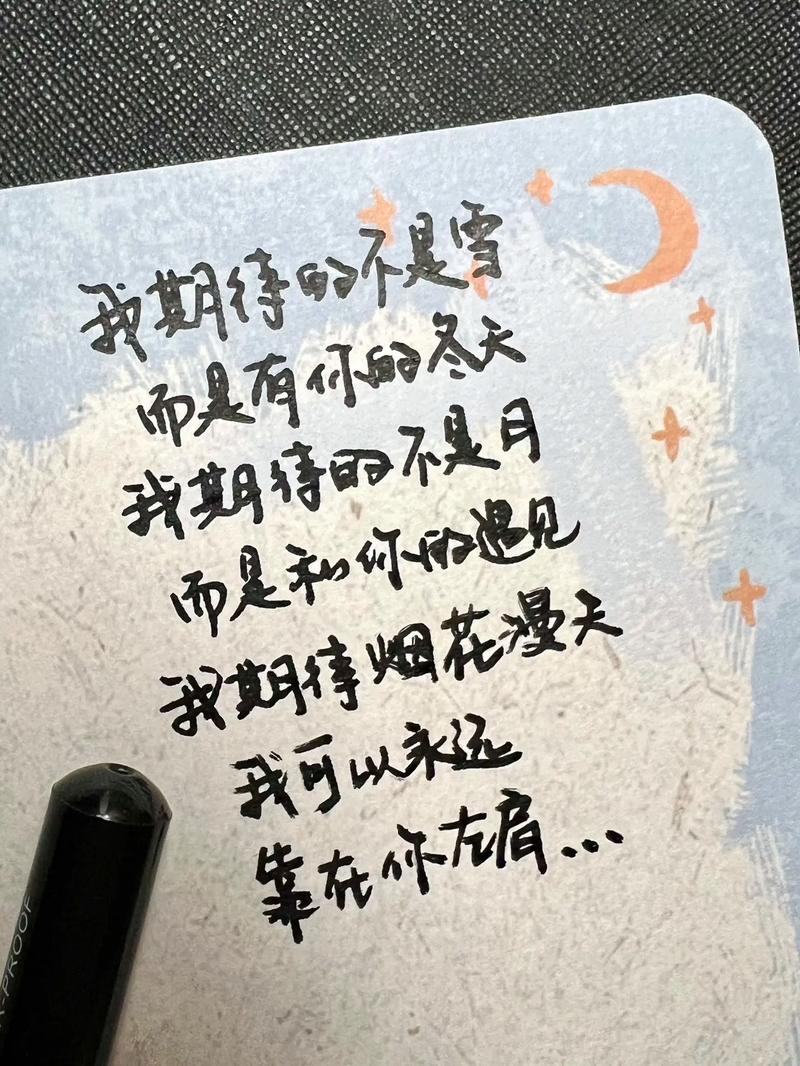 我期待的不是雪
而是有你的冬天
我期待的不是月
而是和你的遇见
我期待烟花漫天
我可以永远
靠在你左肩...
-PROOF